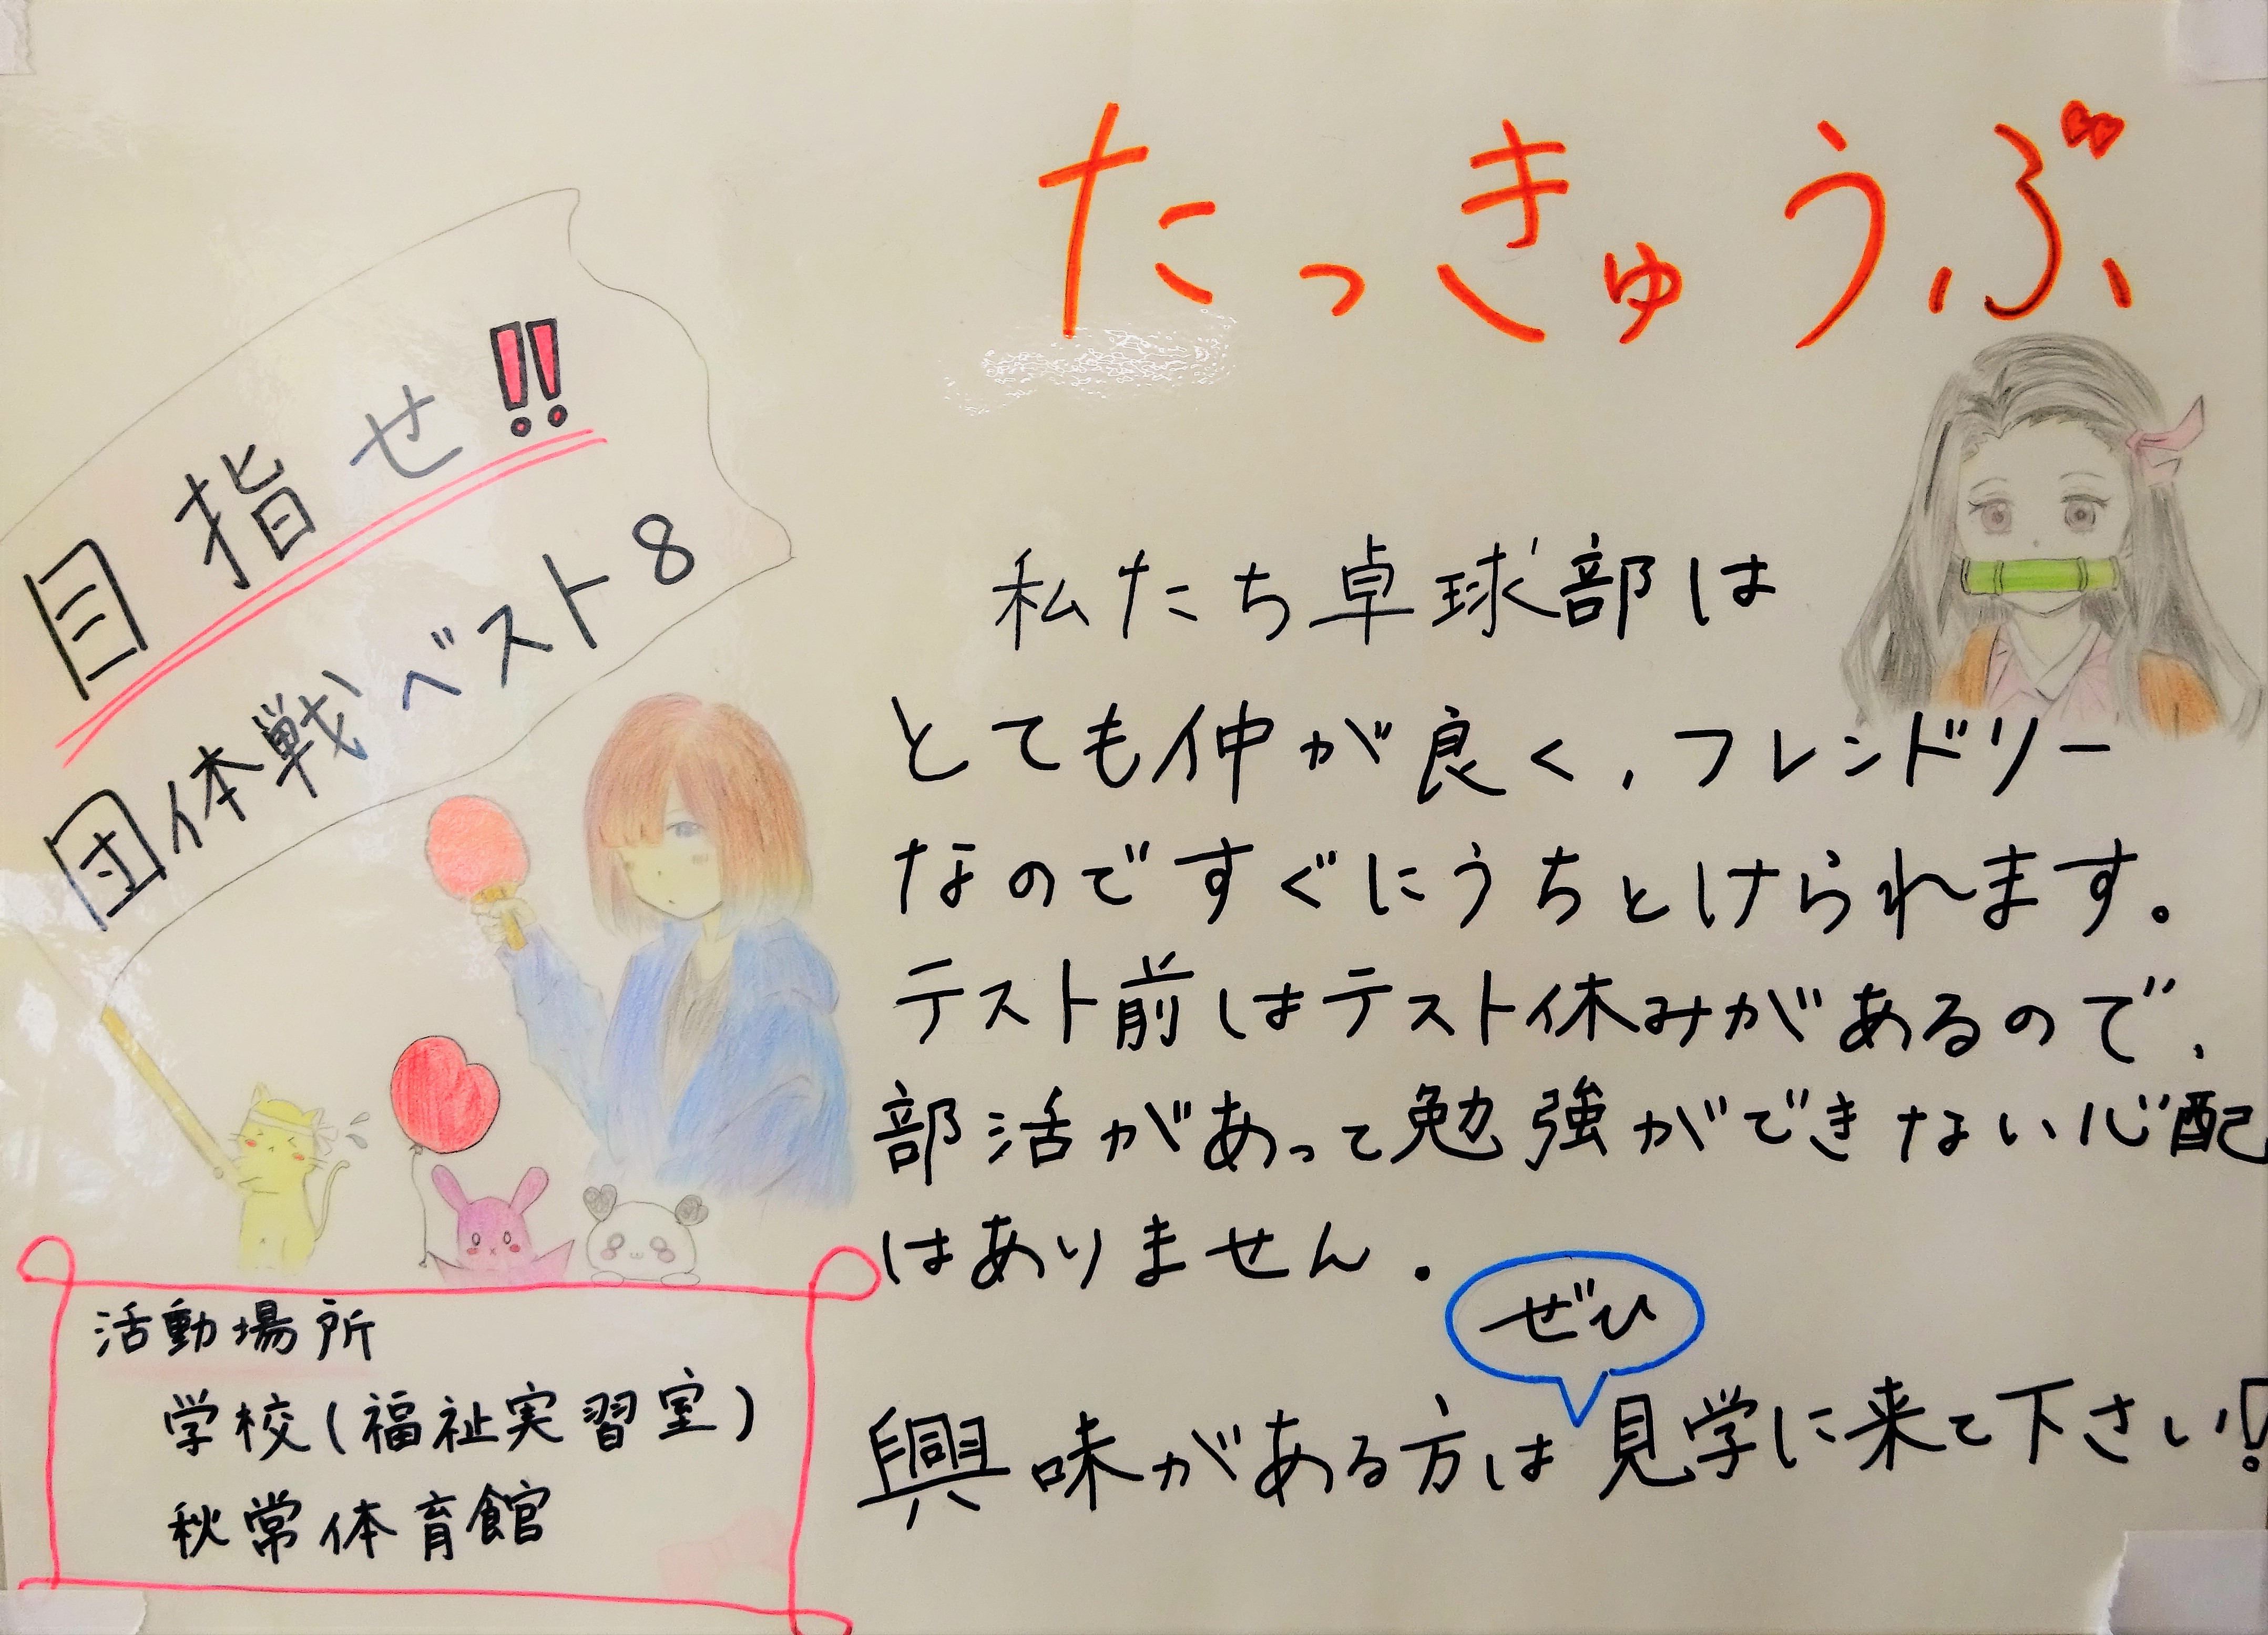 たっきゅうぶ
目指せ!!
団体戦ベスト8
私たち卓球部は
とても仲が良く、フレンドリー
なのですぐにうちとけられます。
テスト前はテスト休みがあるので、
部活があって勉強ができない心配
はありません。
ぜひ
興味がある方は見学に来て下さい!
活動場所
学校(福祉実習室)
秋常体育館